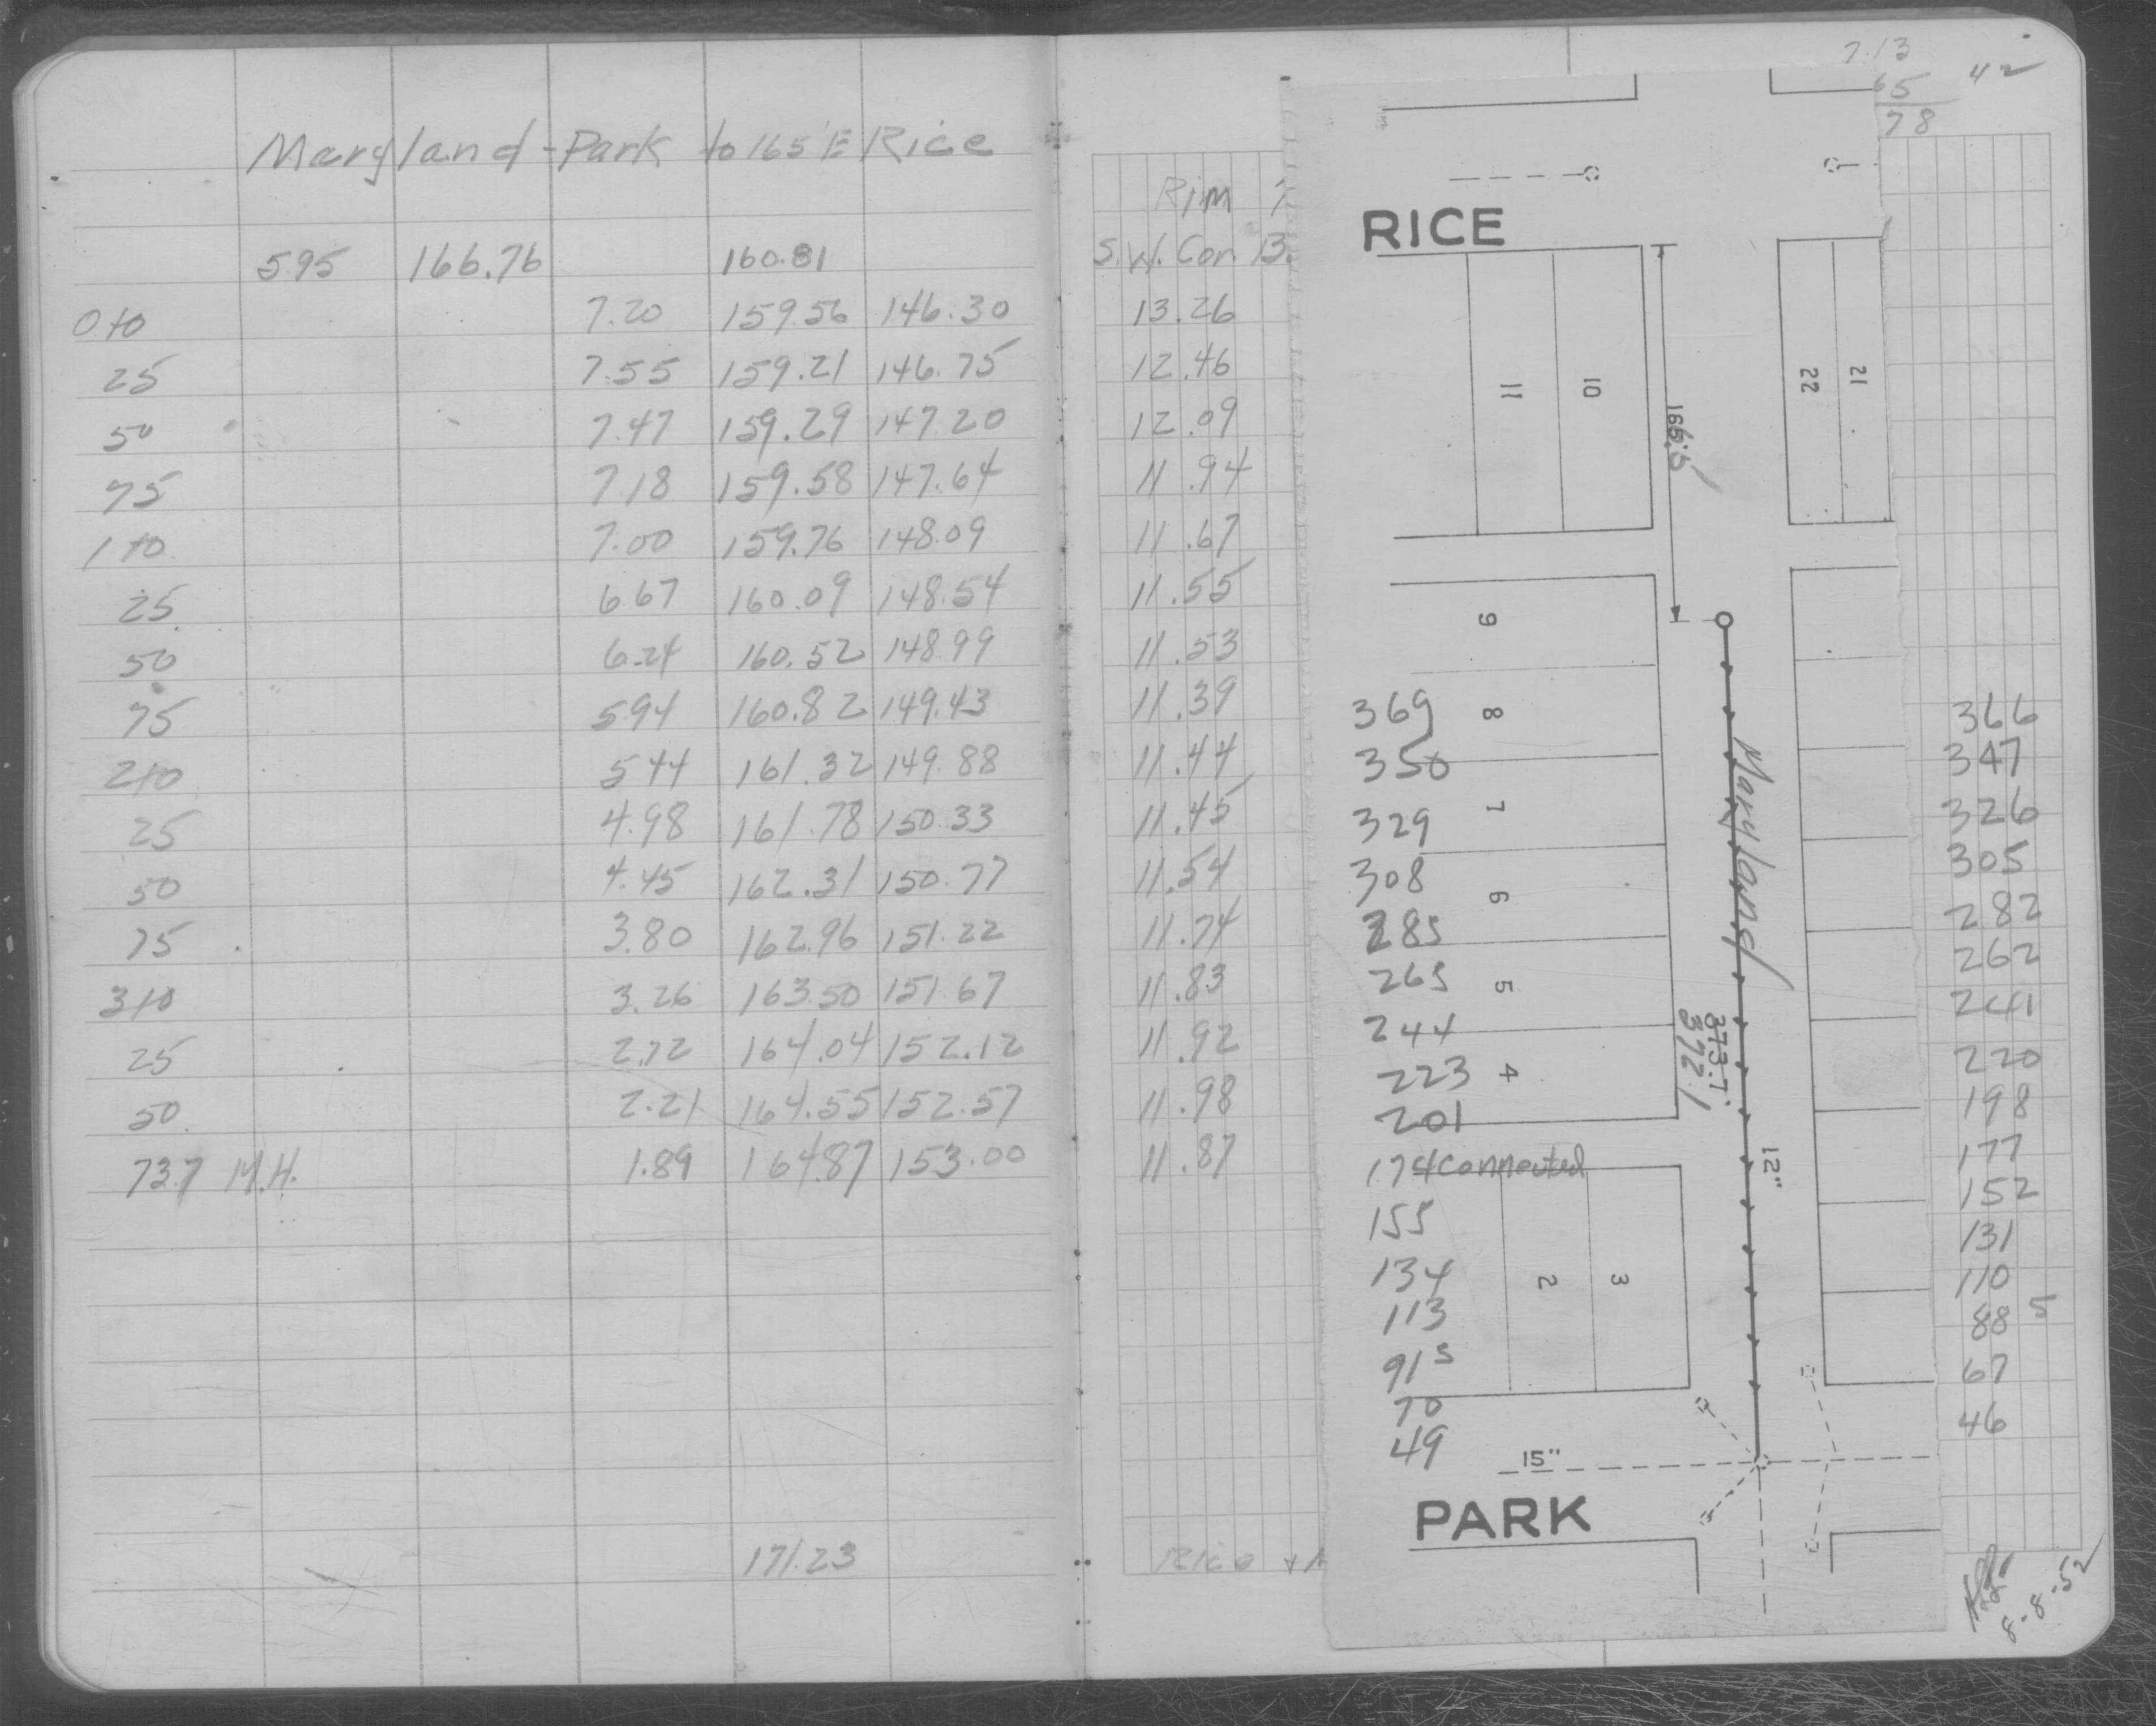 Maryland - Park to 165' E Rice
5.95 166.76 160.81
0+0 7.20 159.56 146.30
25 7.55 159.21 146.75
50 7.47 159.29 147.20
75 7.18 159.58 147.64
1+0 7.00 159.76 148.09
25 6.67 160.09 148.54
50 6.24 160.52 148.99
75 5.94 160.82 149.43
2+0 5.44 161.32 149.88
25 4.98 161.78 150.33
50 4.45 162.31 150.77
75 3.80 162.96 151.22
3+0 3.26 163.50 151.67
25 2.72 164.04 152.12
50 2.21 164.55 152.57
73.7 M.H. 1.89 164.87 153.00
171.23
Rim
S.W. Con B.
13.26
12.46
12.09
11.94
11.67
11.55
11.53
11.39
11.44
11.45
11.54
11.74
11.83
11.92
11.98
11.87
Rice +
7.13
65
78
42
RICE
11
10
22
21
9
8
7
6
5
4
3
2
Maryland
373.7'
372.1
12"
15"
PARK
369
350
329
308
285
265
244
223
201
174 connected
155
134
113
91 5
70
49
366
347
326
305
282
262
241
220
198
177
152
131
110
88 5
67
46
8-8-52